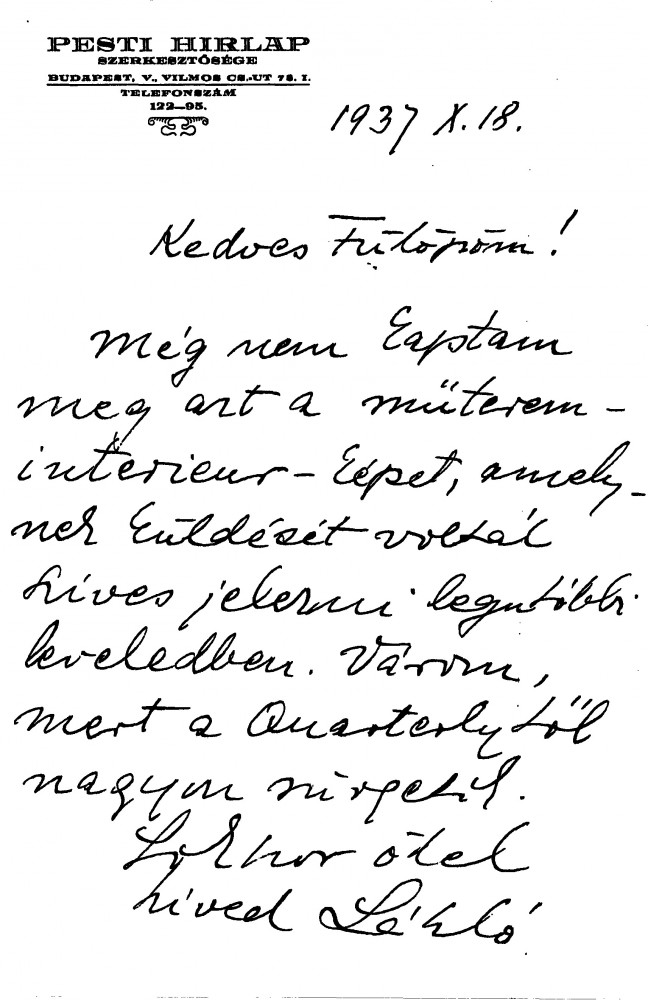 PESTI HIRLAP
SZERKESZTŐSÉGE
BUDAPEST, V., VILMOS CS.-UT 78. I.
TELEFONSZÁM
122—95.
1937 X. 18.
Kedves Fülöpöm!
Még nem kaptam
meg azt a műterem-
interieur-képet, amely-
nek küldését voltál
szíves jelezni legutóbbi
leveledben. Várom,
mert a Quarterlytől
nagyon sürgetik.
Sokszor ölel
híved László